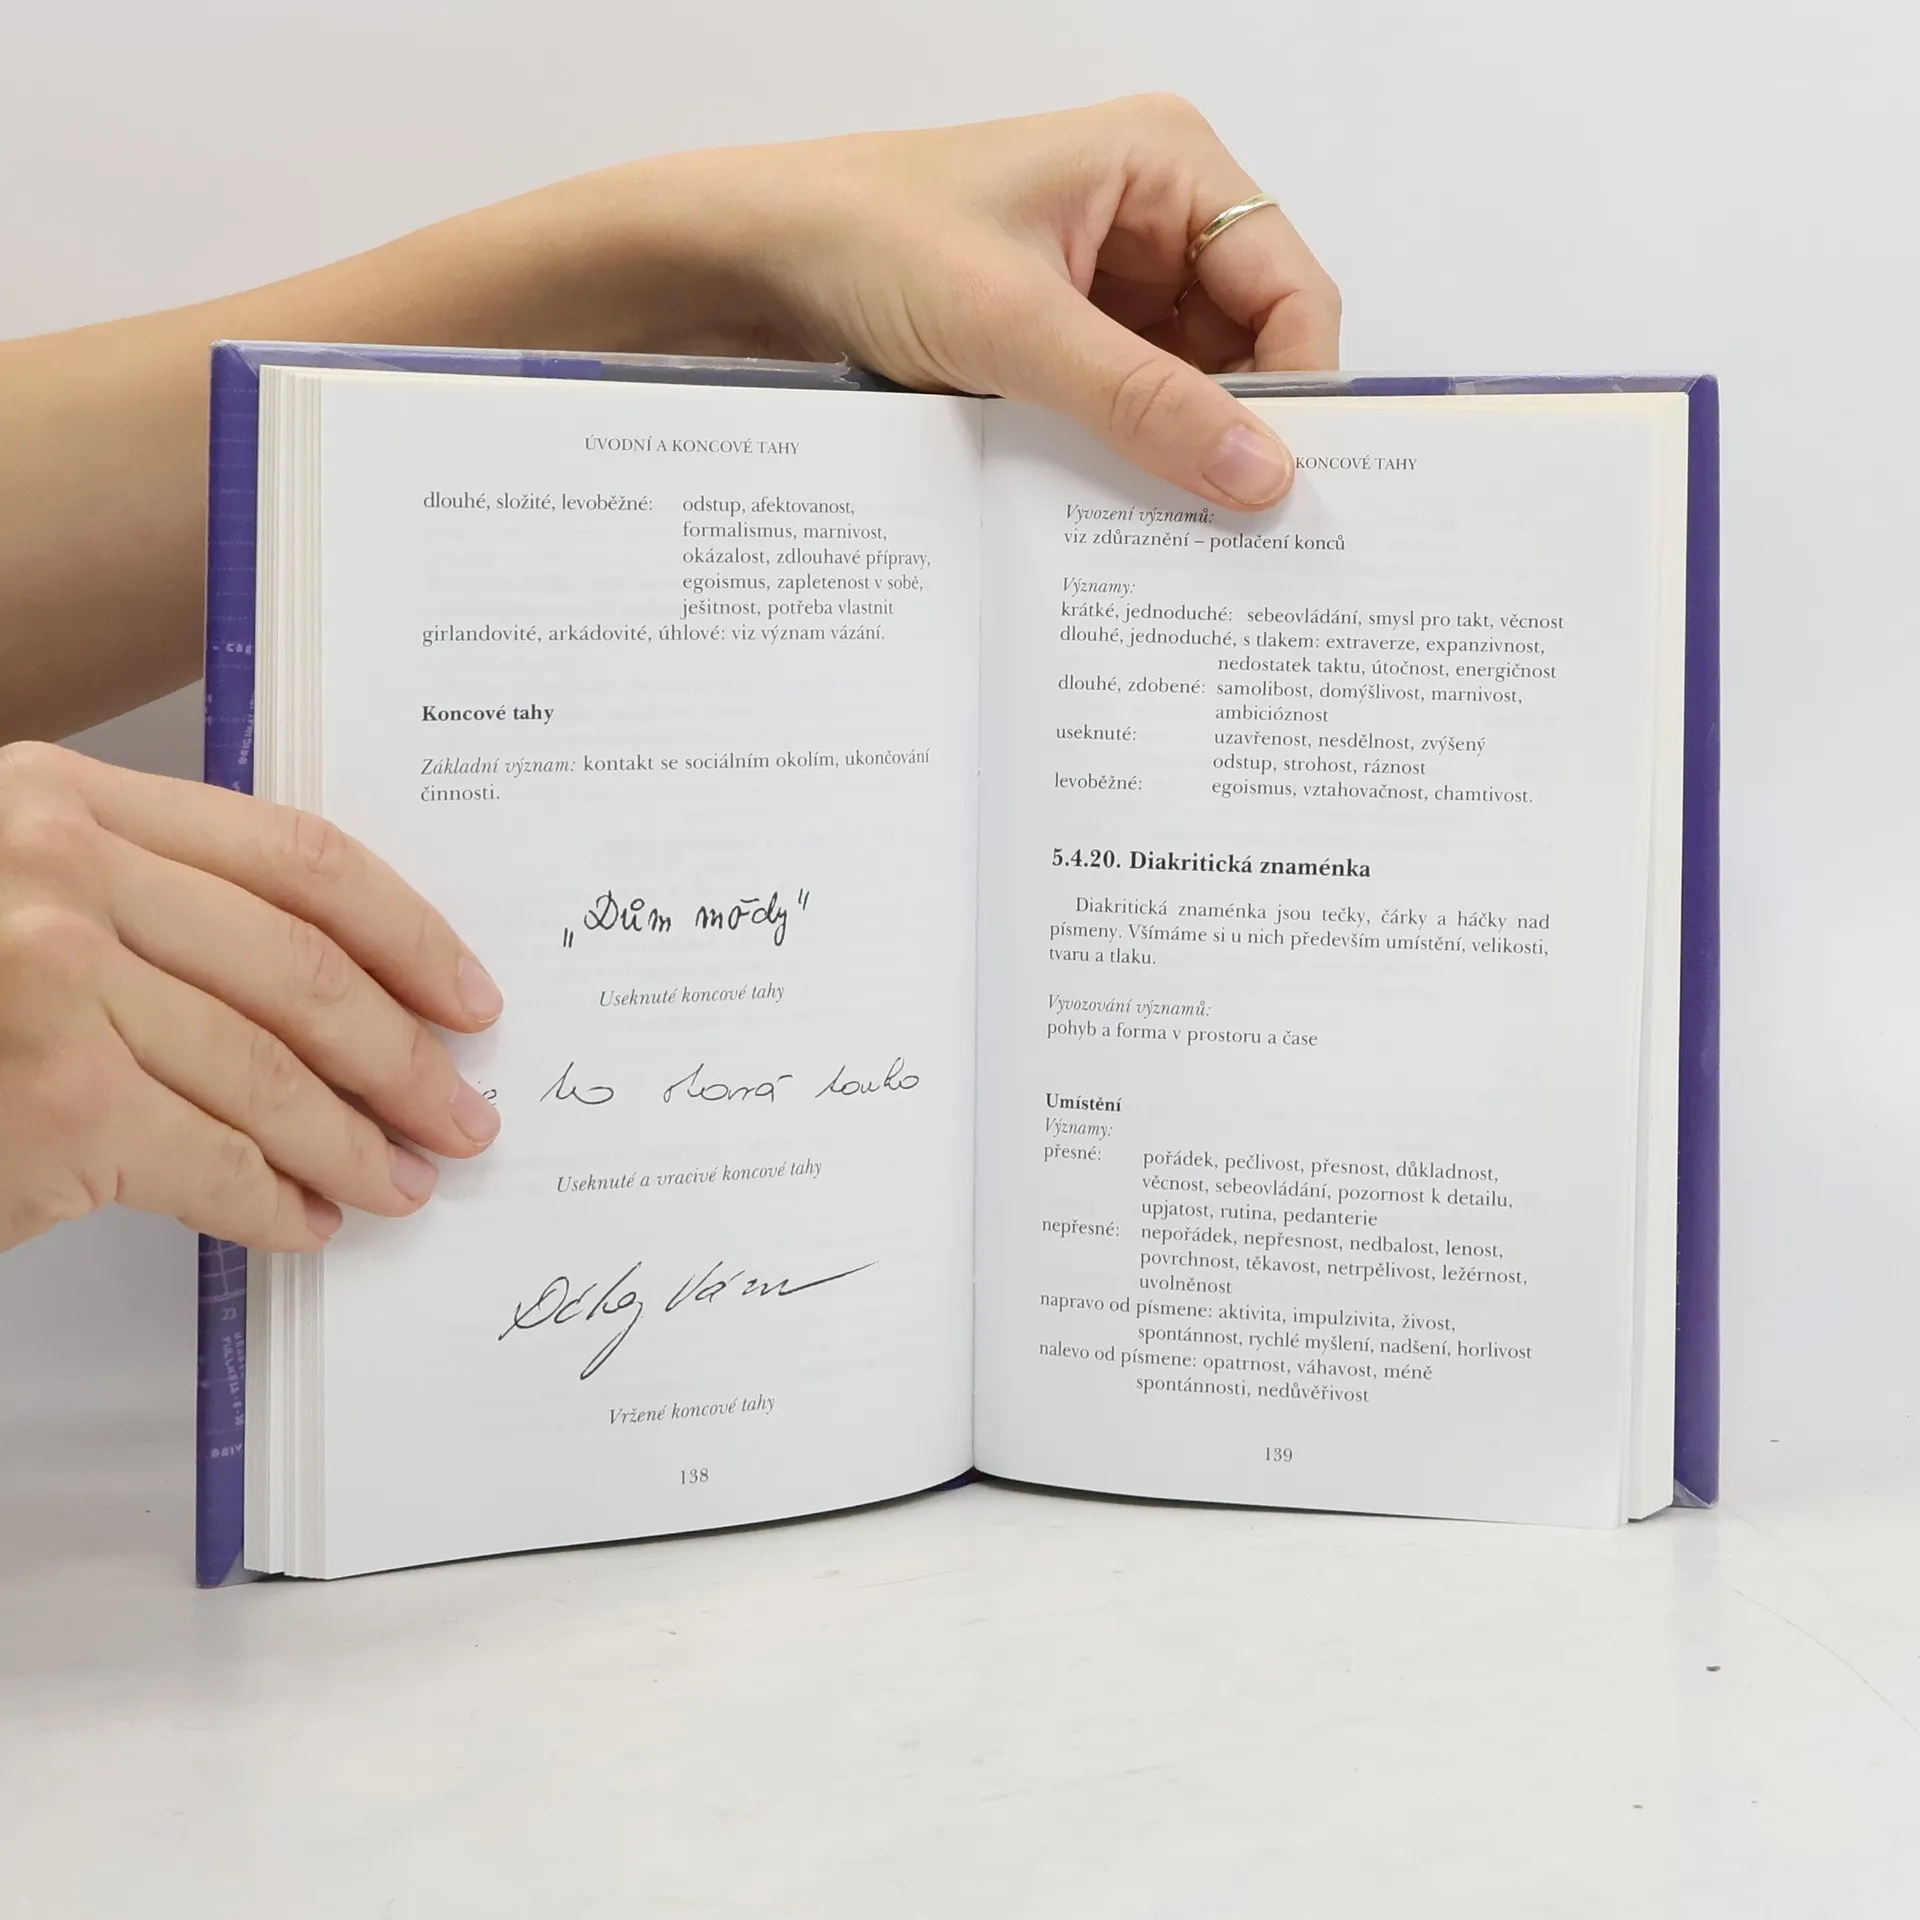 ÚVODNÍ A KONCOVÉ TAHY
dlouhé, složité, levoběžné: odstup, afektovanost,
formalismus, marnivost,
okázalost, zdlouhavé přípravy,
egoismus, zapletenost v sobě,
ješitnost, potřeba vlastnit
girlandovité, arkádovité, úhlové: viz význam vázání.
Koncové tahy
Základní význam: kontakt se sociálním okolím, ukončování
činnosti.
„Dům módy"
Useknuté koncové tahy
to stará touha
Useknuté a vracivé koncové tahy
Vám
Vržené koncové tahy
138
KONCOVÉ TAHY
Vyvození významů:
viz zdůraznění – potlačení konců
Významy:
krátké, jednoduché: sebeovládání, smysl pro takt, věcnost
dlouhé, jednoduché, s tlakem: extraverze, expanzivnost,
nedostatek taktu, útočnost, energičnost
dlouhé, zdobené: samolibost, domýšlivost, marnivost,
ambicióznost
useknuté: uzavřenost, nesdělnost, zvýšený
odstup, strohost, ráznost
levoběžné: egoismus, vztahovačnost, chamtivost.
5.4.20. Diakritická znaménka
Diakritická znaménka jsou tečky, čárky a háčky nad
písmeny. Všímáme si u nich především umístění, velikosti,
tvaru a tlaku.
Vyvozování významů:
pohyb a forma v prostoru a čase
Umístění
Významy:
přesné: pořádek, pečlivost, přesnost, důkladnost,
věcnost, sebeovládání, pozornost k detailu,
upjatost, rutina, pedanterie
nepřesné: nepořádek, nepřesnost, nedbalost, lenost,
povrchnost, těkavost, netrpělivost, ležérnost,
uvolněnost
napravo od písmene: aktivita, impulzivita, živost,
spontánnost, rychlé myšlení, nadšení, horlivost
nalevo od písmene: opatrnost, váhavost, méně
spontánnosti, nedůvěřivost
139